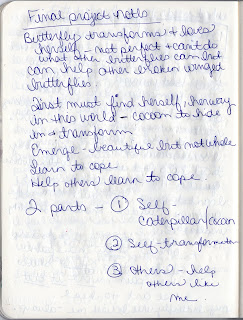 Final project notes
Butterfly transforms & loves
herself - not perfect & can't do
what other butterflies can but
can help other broken winged
butterflies.
First must find herself, her way
in this world - cocoon to hide
in & transform
Emerge - beautiful but not whole
Learn to cope.
Help others learn to cope.
2 parts - ① Self -
caterpillar/cocoon
② Self-transformation
③ Others - help
others like
me.